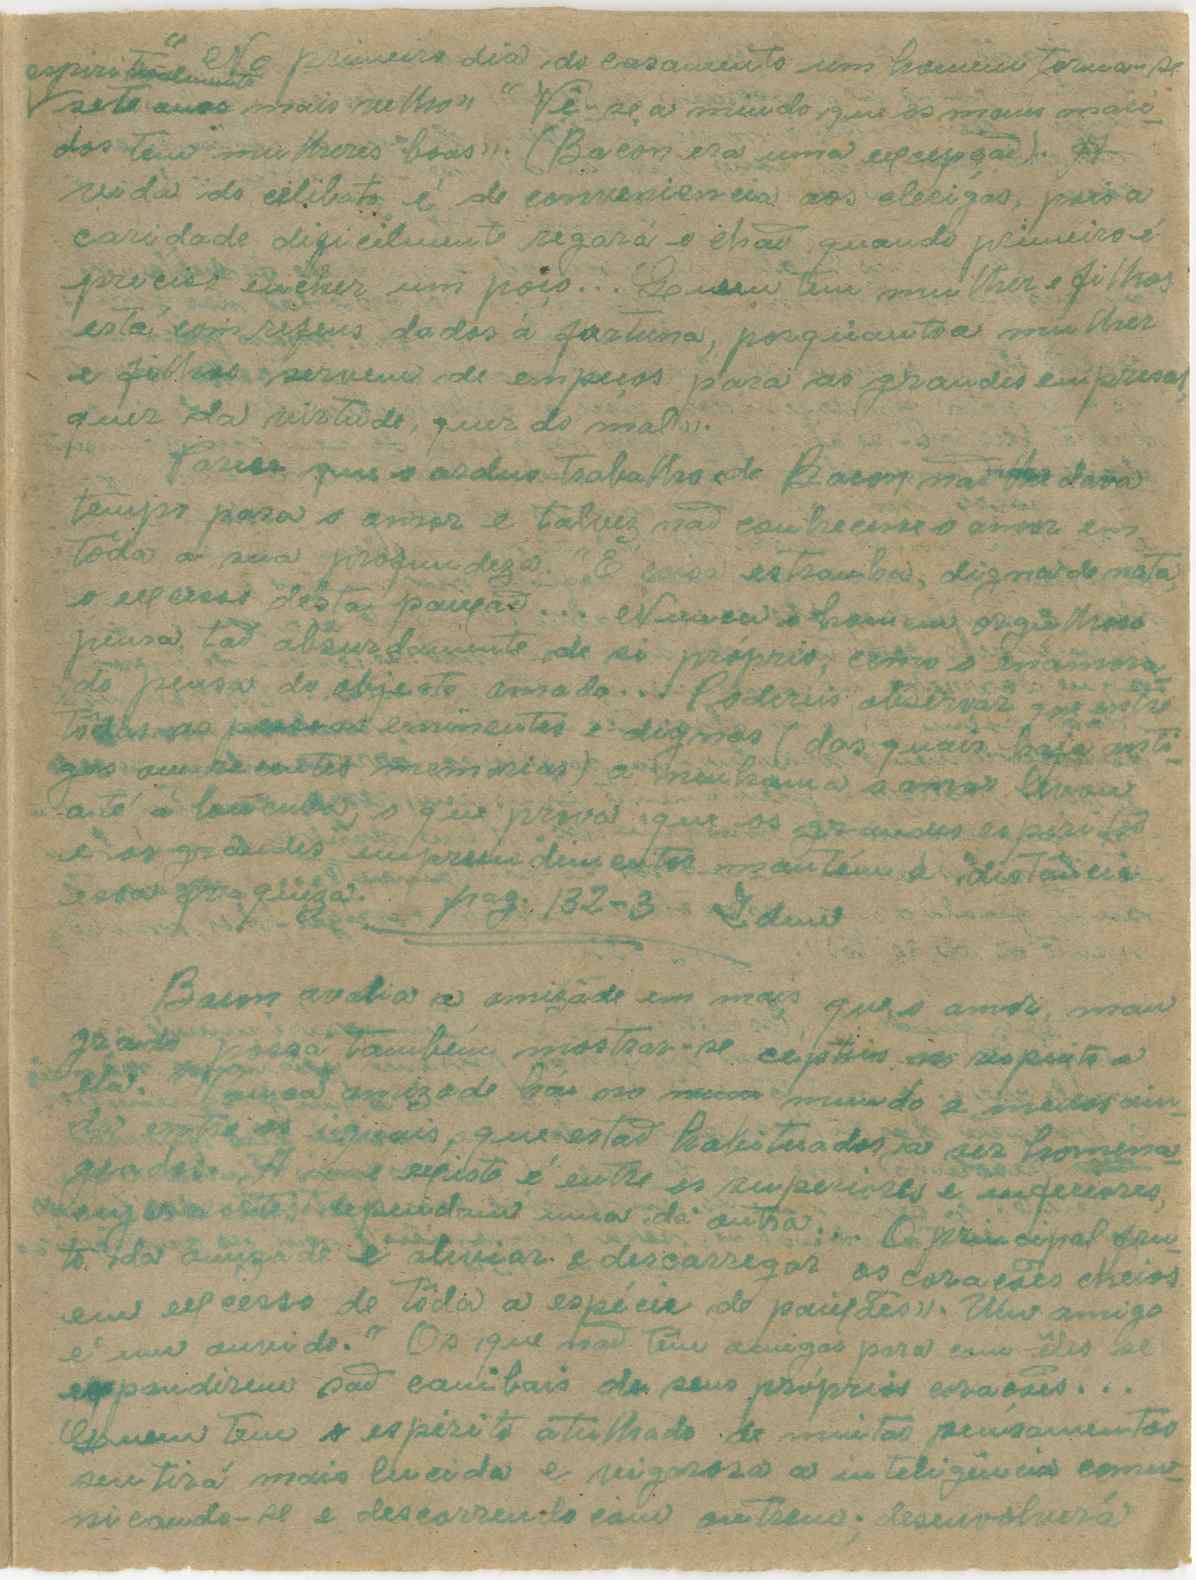 " No primeiro dia do casamento um homem torna-se
espiritualmente
sete anos mais velho". "Vê-se a miudo que os maus mari-
dos tem mulheres boas". (Bacon era uma excepção). A
vida do celibato é de conveniencia aos clerigos, pois a
caridade dificilmente regará o chão quando primeiro é
preciso encher um poço... Quem tem mulher e filhos
está com refens dados á fortuna, porquanto a mulher
e filhos servem de empeços para as grandes empresas,
quer da virtude, quer do mal".
Parece que o arduo trabalho de Bacon não lhe dava
tempo para o amor e talvez não conhecesse o amor em
tôda a sua profundeza. "É coisa estranha, digna de nota,
o excesso desta paixão... Nunca o homem orgulhoso
pensa tão absurdamente de si próprio, como o enamora-
do pensa do objecto amado... Podereis observar que entre
tôdas as pessoas eminentes e dignas (das quais haja anti-
gas ou recentes memorias) a nenhuma o amor levou
até á loucura, o que prova que os grandes espiritos
e os grandes empreendimentos mantém á distância
essa fraqueza. pag. 132-3 Idem
Bacon avalia a amizade em mais que o amor, mau
grado possa também mostrar-se céptico no respeito a
ela. "Pouca amizade há no mundo e menos ain-
da entre os iguais, que estão habituados a ser homena-
geados. A que existe é entre os superiores e inferiores,
cujas sortes dependem uma da outra... O principal fru-
to da amizade é aliviar e descarregar os corações cheios
em excesso de tôda a espécie de paixões". Um amigo
é um ouvido. "Os que não têm amigos para com êles se
expandirem são canibais de seus próprios corações...
Quem tem o espirito atulhado de muitos pensamentos
sentirá mais lucida e vigorosa a inteligência comu-
nicando-se e descorrendo com outrem; desenvolverá